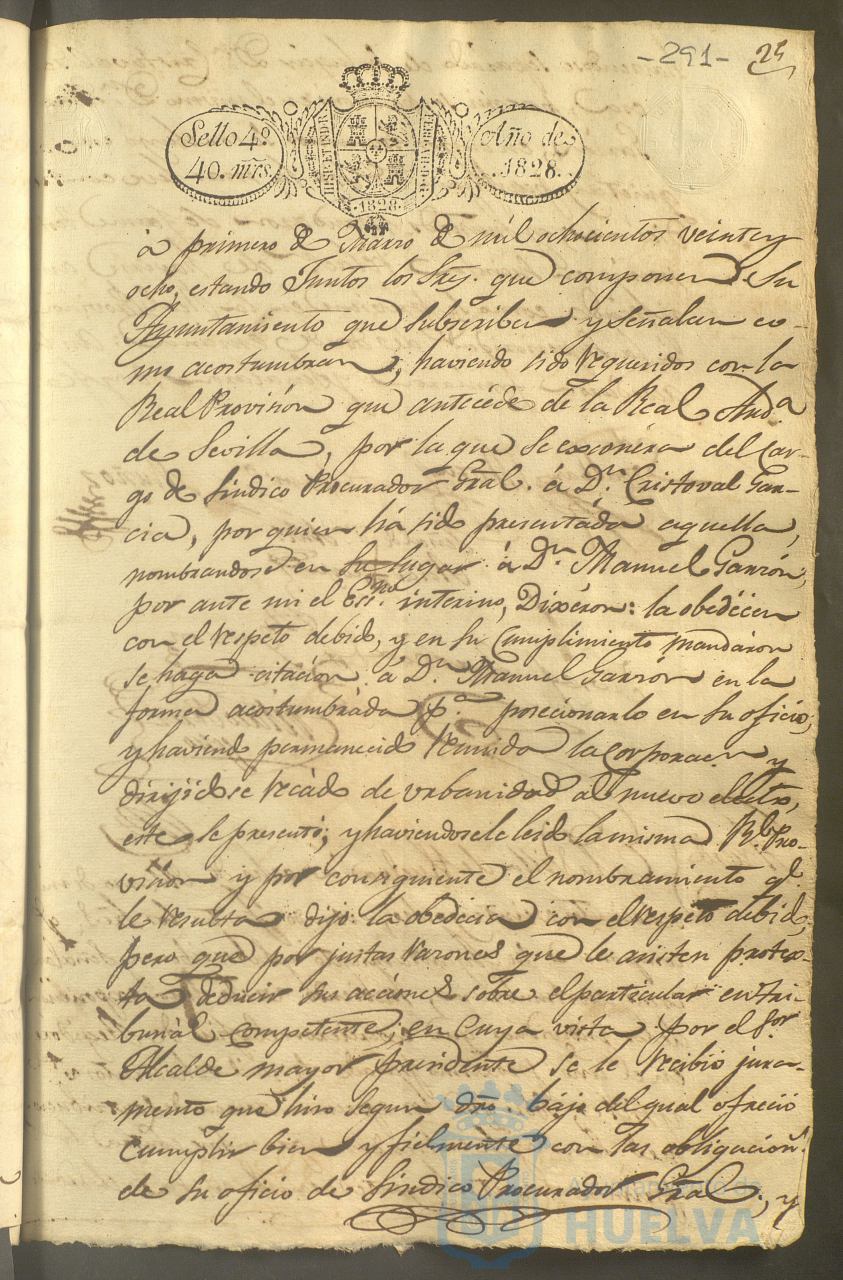 -291- 25
Sello 4º
40. mrs.
HISP. ET IND. R
Año de
1828.
·1828·
á primero de Marzo de mil ochocientos veinte y
ocho, estando Juntos los Srs. que componen Su
Ayuntamiento que subscriben y señalan co-
mo acostumbran, haviendo sido requeridos con la
Real Provisión que antecéde de la Real Aud.ª
de Sevilla, por la que se exonéra del Car-
go de Síndico Procurador Gral. á D.n Cristoval Gar-
cia, por quien há sido presentáda aquella,
nombrandose en su lugar á D.n Manuel Garzón,
por ante mi el Es.no interino, Dixéron: la obedécen
con el respeto debido, y en su Cumplimiento mandáron
se haga citación á D.n Manuel Garzón en la
forma acostumbráda p.a posecionarlo en su oficio;
y haviendo permanecido reunida la Corporac.n y
dirijidose recádo de urbanidad al nuevo electo,
este se presentó; y haviendosele leido la misma R.l Pro-
visión y por consiguiente el nombramiento q.e
le resulta dijo: la obedecia con el respeto debido,
pero que por justas razones que le asisten protex-
ta deducir sus acciónes sobre el particular en tri-
bunál competente; en cuya vista por el S.or
Alcalde mayor presidente se le recibió jura-
mento que hizo segun dro. bajo del qual ofreció
cumplir bien y fielménte con las obligación.s
de su oficio de Síndico Procurador Gral; y
HUELVA